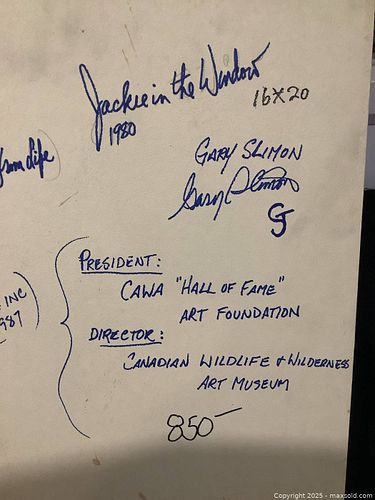 Jackie in the Window
1980
16X20
from life)
GARY SLIMON
Gary Slimon
GS
INC
987
PRESIDENT:
CAWA "HALL OF FAME"
ART FOUNDATION
DIRECTOR:
CANADIAN WILDLIFE & WILDERNESS
ART MUSEUM
850—
Copyright © 2025 - maxsold.com